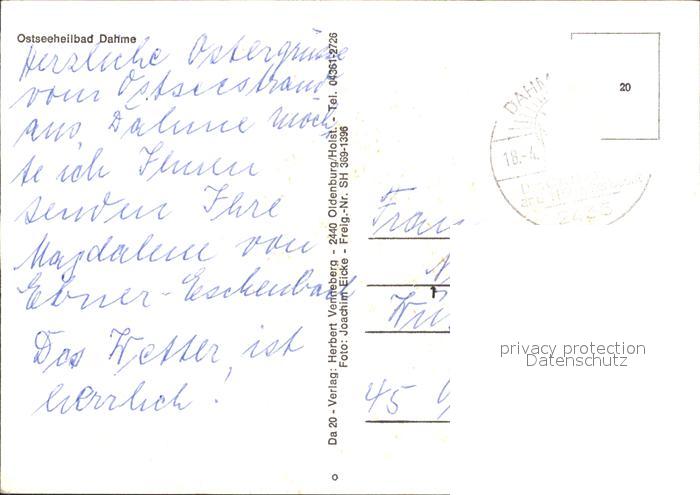 Ostseeheilbad Dahme
Herzliche Ostergrüsse
vom Ostseestrand
aus Dahme möch
te ich Ihnen
senden Ihre
Magdalene von
Ebner-Eschenbach
Das Wetter ist
herrlich!
Da 20 - Verlag: Herbert Venneberg - 2440 Oldenburg/Holst. - Tel. 04361-2726
Foto: Joachim Eicke - Freig.-Nr. SH 369-1396
DAHM
18.-4.
2435
20
Frau
Wü
45
privacy protection
Datenschutz